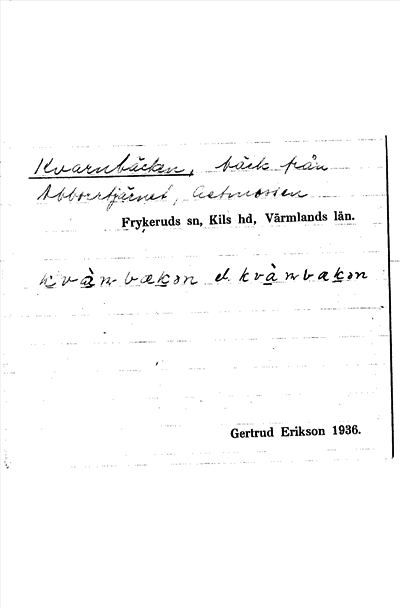 Kvarnbäcken, bäck från
Abborrtjärnet,
Frykeruds sn, Kils hd, Värmlands län.
kvànbækən el. kvànbakən
Gertrud Erikson 1936.